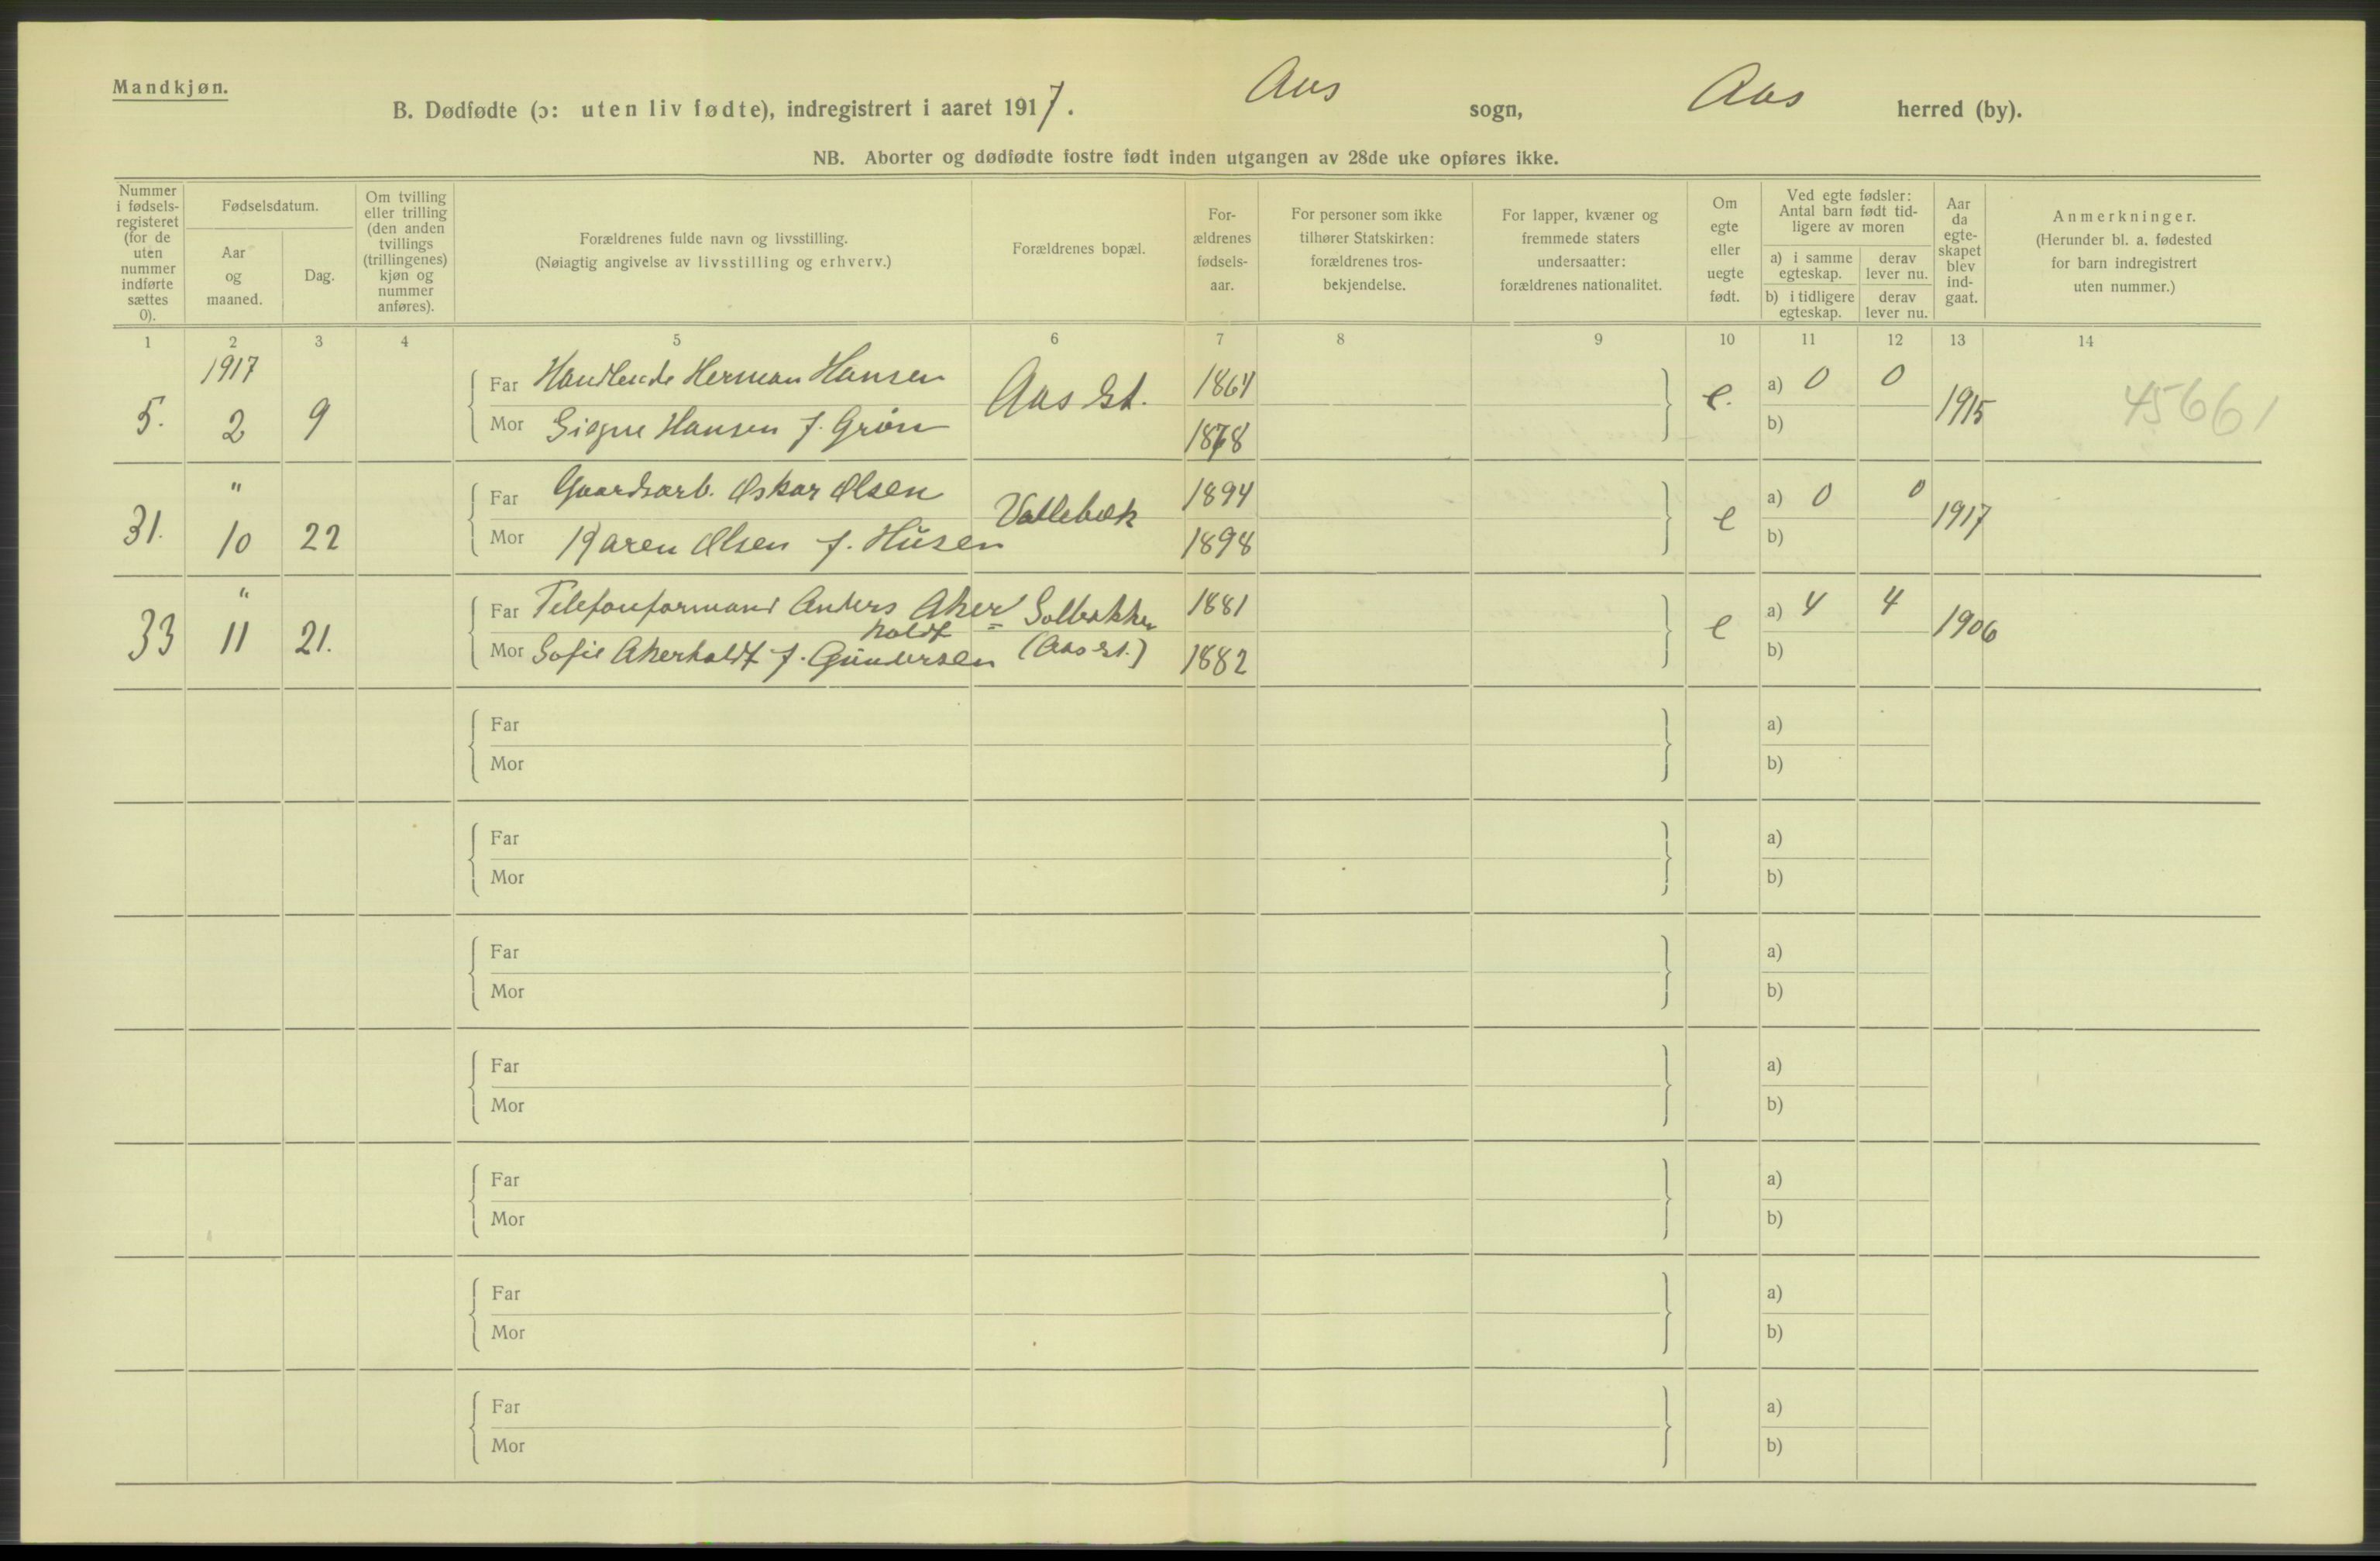 Mandkjøn.
B. Dødfødte (ɔ: uten liv fødte), indregistrert i aaret 1917. Aas sogn, Aas herred (by).
NB. Aborter og dødfødte fostre født inden utgangen av 28de uke opføres ikke.
Nummer
i fødsels-
registeret
(for de
uten
nummer
indførte
sættes
0).
Fødselsdatum.
Aar
og
maaned.
Dag.
Om tvilling
eller trilling
(den anden
tvillings
(trillingenes)
kjøn og
nummer
anføres).
Forældrenes fulde navn og livsstilling.
(Nøiagtig angivelse av livsstilling og erhverv.)
Forældrenes bopæl.
For-
ældrenes
fødsels-
aar.
For personer som ikke
tilhører Statskirken:
forældrenes tros-
bekjendelse.
For lapper, kvæner og
fremmede staters
undersaatter:
forældrenes nationalitet.
Om
egte
eller
uegte
født.
Ved egte fødsler:
Antal barn født tid-
ligere av moren
a) i samme
egteskap.
derav
lever nu.
b) i tidligere
egteskap.
derav
lever nu.
Aar
da
egte-
skapet
blev
ind-
gaat.
Anmerkninger.
(Herunder bl. a. fødested
for barn indregistrert
uten nummer.)
1 2 3 4 5 6 7 8 9 10 11 12 13 14
1917
5. 2 9
Far Handlende Herman Hansen
Mor Signe Hansen f. Grøn
Aas st.
1864
1878
e.
a) 0 0
b)
1915
45661
"
31. 10 22
Far Gaardsarb. Oskar Olsen
Mor Karen Olsen f. Husen
Vollebæk
1894
1898
e
a) 0 0
b)
1917
"
33 11 21.
Far Telefonformand Anders Aker=
holdt
Mor Sofie Akerholdt f. Gundersen
Solbakken
(Aas st.)
1881
1882
e
a) 4 4
b)
1906
Far a)
Mor b)
Far a)
Mor b)
Far a)
Mor b)
Far a)
Mor b)
Far a)
Mor b)
Far a)
Mor b)
Far a)
Mor b)